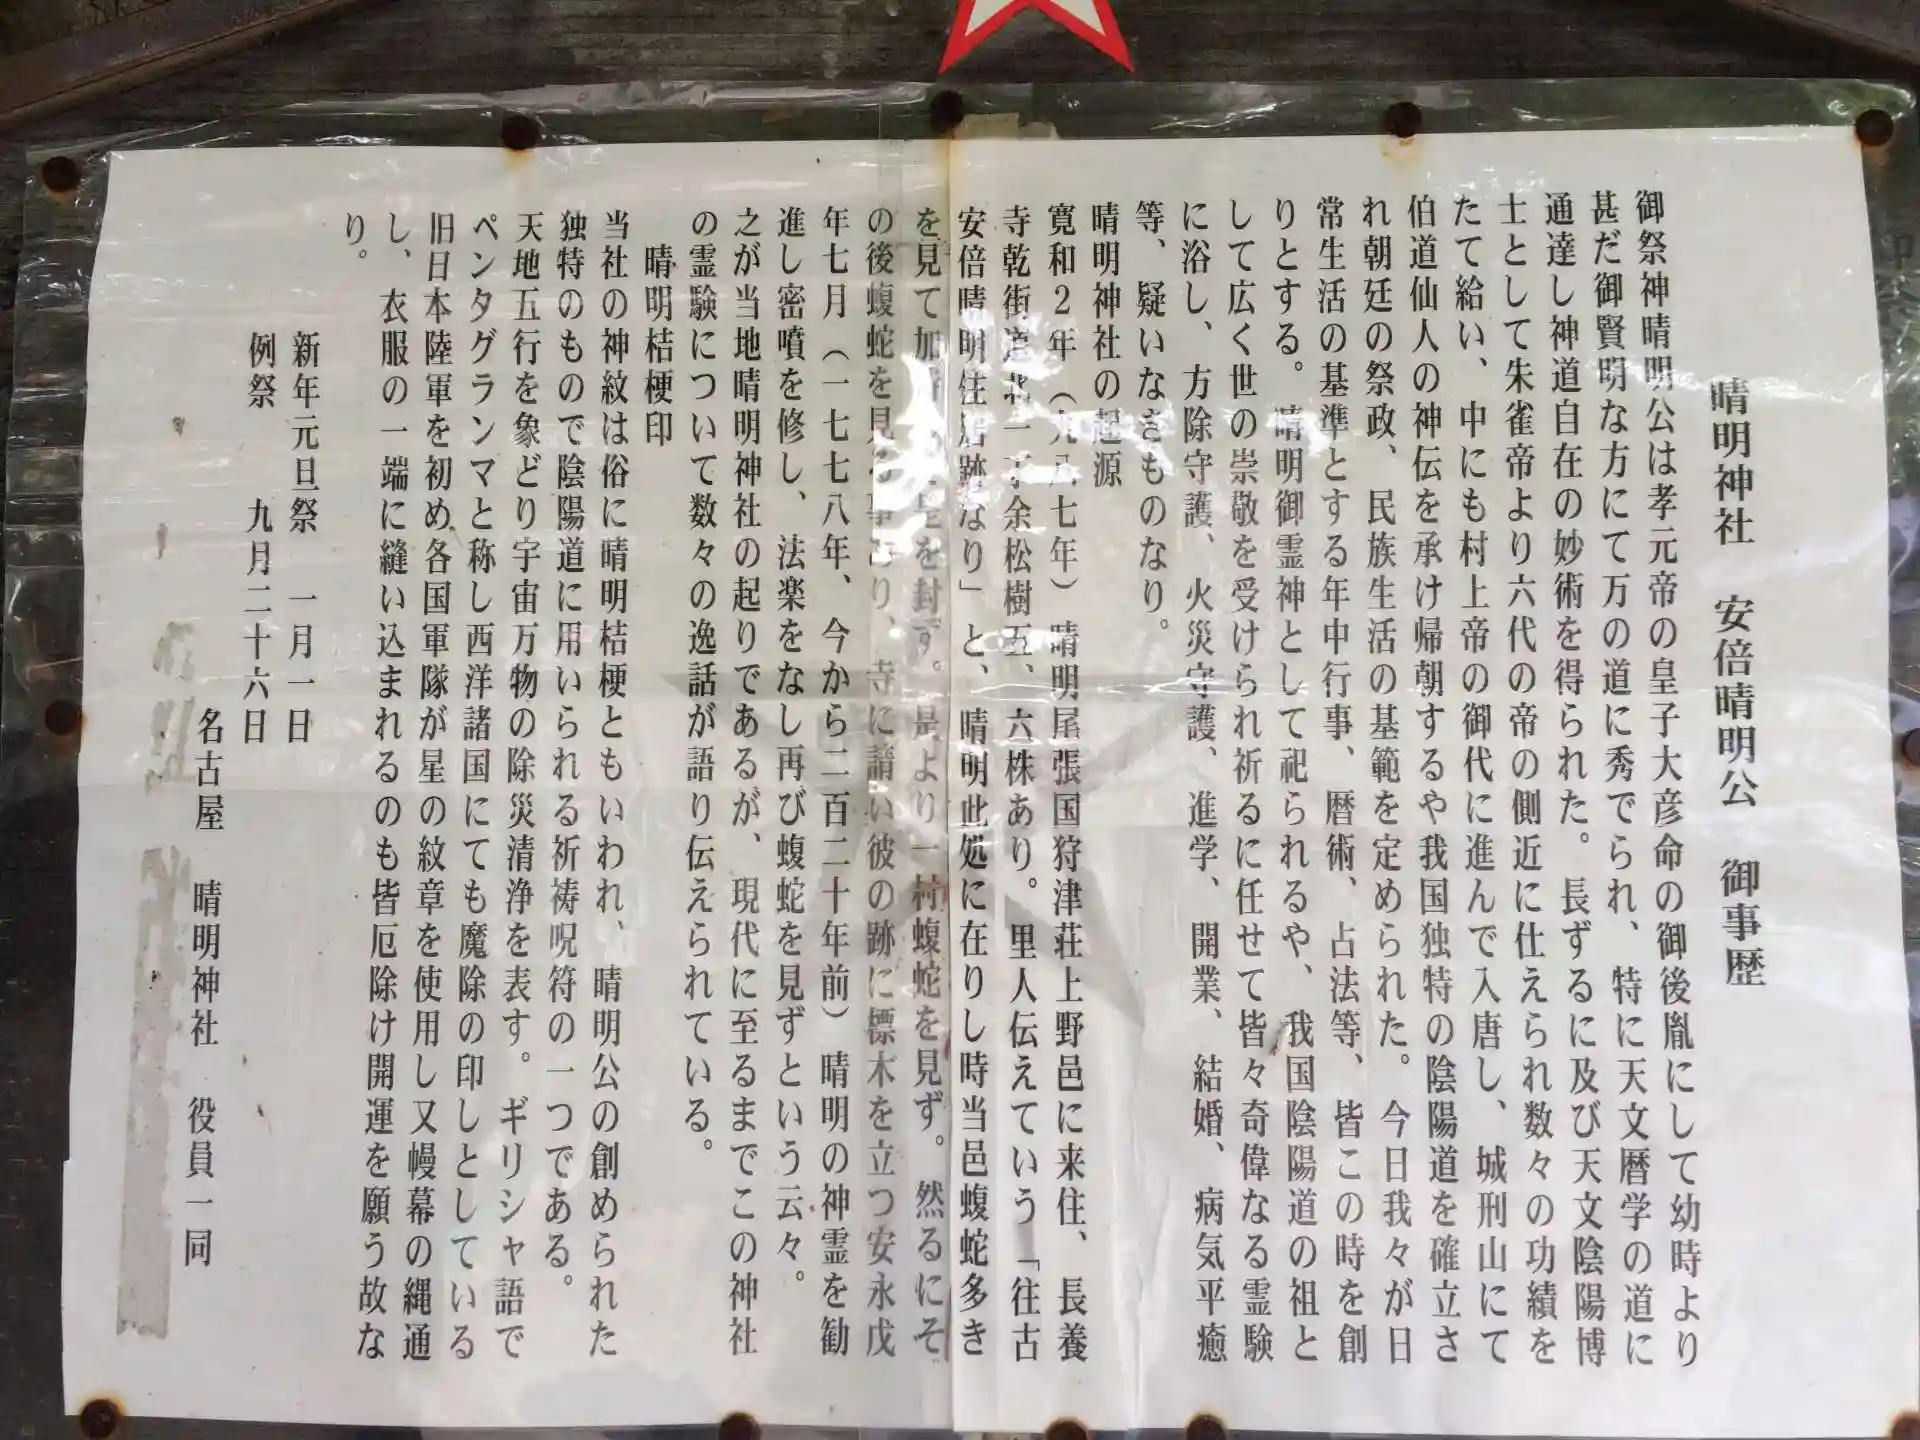 晴明神社　安倍晴明公　御事歴
御祭神晴明公は孝元帝の皇子大彦命の御後胤にして幼時より
甚だ御賢明な方にて万の道に秀でられ、特に天文暦学の道に
通達し神道自在の妙術を得られた。長ずるに及び天文陰陽博
士として朱雀帝より六代の帝の側近に仕えられ数々の功績を
たて給い、中にも村上帝の御代に進んで入唐し、城刑山にて
伯道仙人の神伝を承け帰朝するや我国独特の陰陽道を確立さ
れ朝廷の祭政、民族生活の基範を定められた。今日我々が日
常生活の基準とする年中行事、暦術、占法等、皆この時を創
りとする。晴明御霊神として祀られるや、我国陰陽道の祖と
して広く世の崇敬を受けられ祈るに任せて皆々奇偉なる霊験
に浴し、方除守護、火災守護、進学、開業、結婚、病気平癒
等、疑いなきものなり。
晴明神社の起源
寛和２年（九八七年）晴明尾張国狩津荘上野邑に来住、長養
寺乾街道北一丁余松樹五、六株あり。里人伝えていう「往古
安倍晴明住居跡なり」と、晴明此処に在りし時当邑蝮蛇多き
を見て加を封ず。是より一村蝮蛇を見ず。然るにそ
の後蝮蛇を見る事あり、寺に請い彼の跡に標木を立つ安永戊
年七月（一七七八年、今から二百二十年前）晴明の神霊を勧
進し密噴を修し、法楽をなし再び蝮蛇を見ずという云々。
之が当地晴明神社の起りであるが、現代に至るまでこの神社
の霊験について数々の逸話が語り伝えられている。
晴明桔梗印
当社の神紋は俗に晴明桔梗ともいわれ、晴明公の創められた
独特のもので陰陽道に用いられる祈祷呪符の一つである。
天地五行を象どり宇宙万物の除災清浄を表す。ギリシャ語で
ペンタグランマと称し西洋諸国にても魔除の印しとしている
旧日本陸軍を初め各国軍隊が星の紋章を使用し又幔幕の縄通
し、衣服の一端に縫い込まれるのも皆厄除け開運を願う故な
り。
新年元旦祭　一月一日
例祭　　九月二十六日
名古屋　晴明神社　役員一同